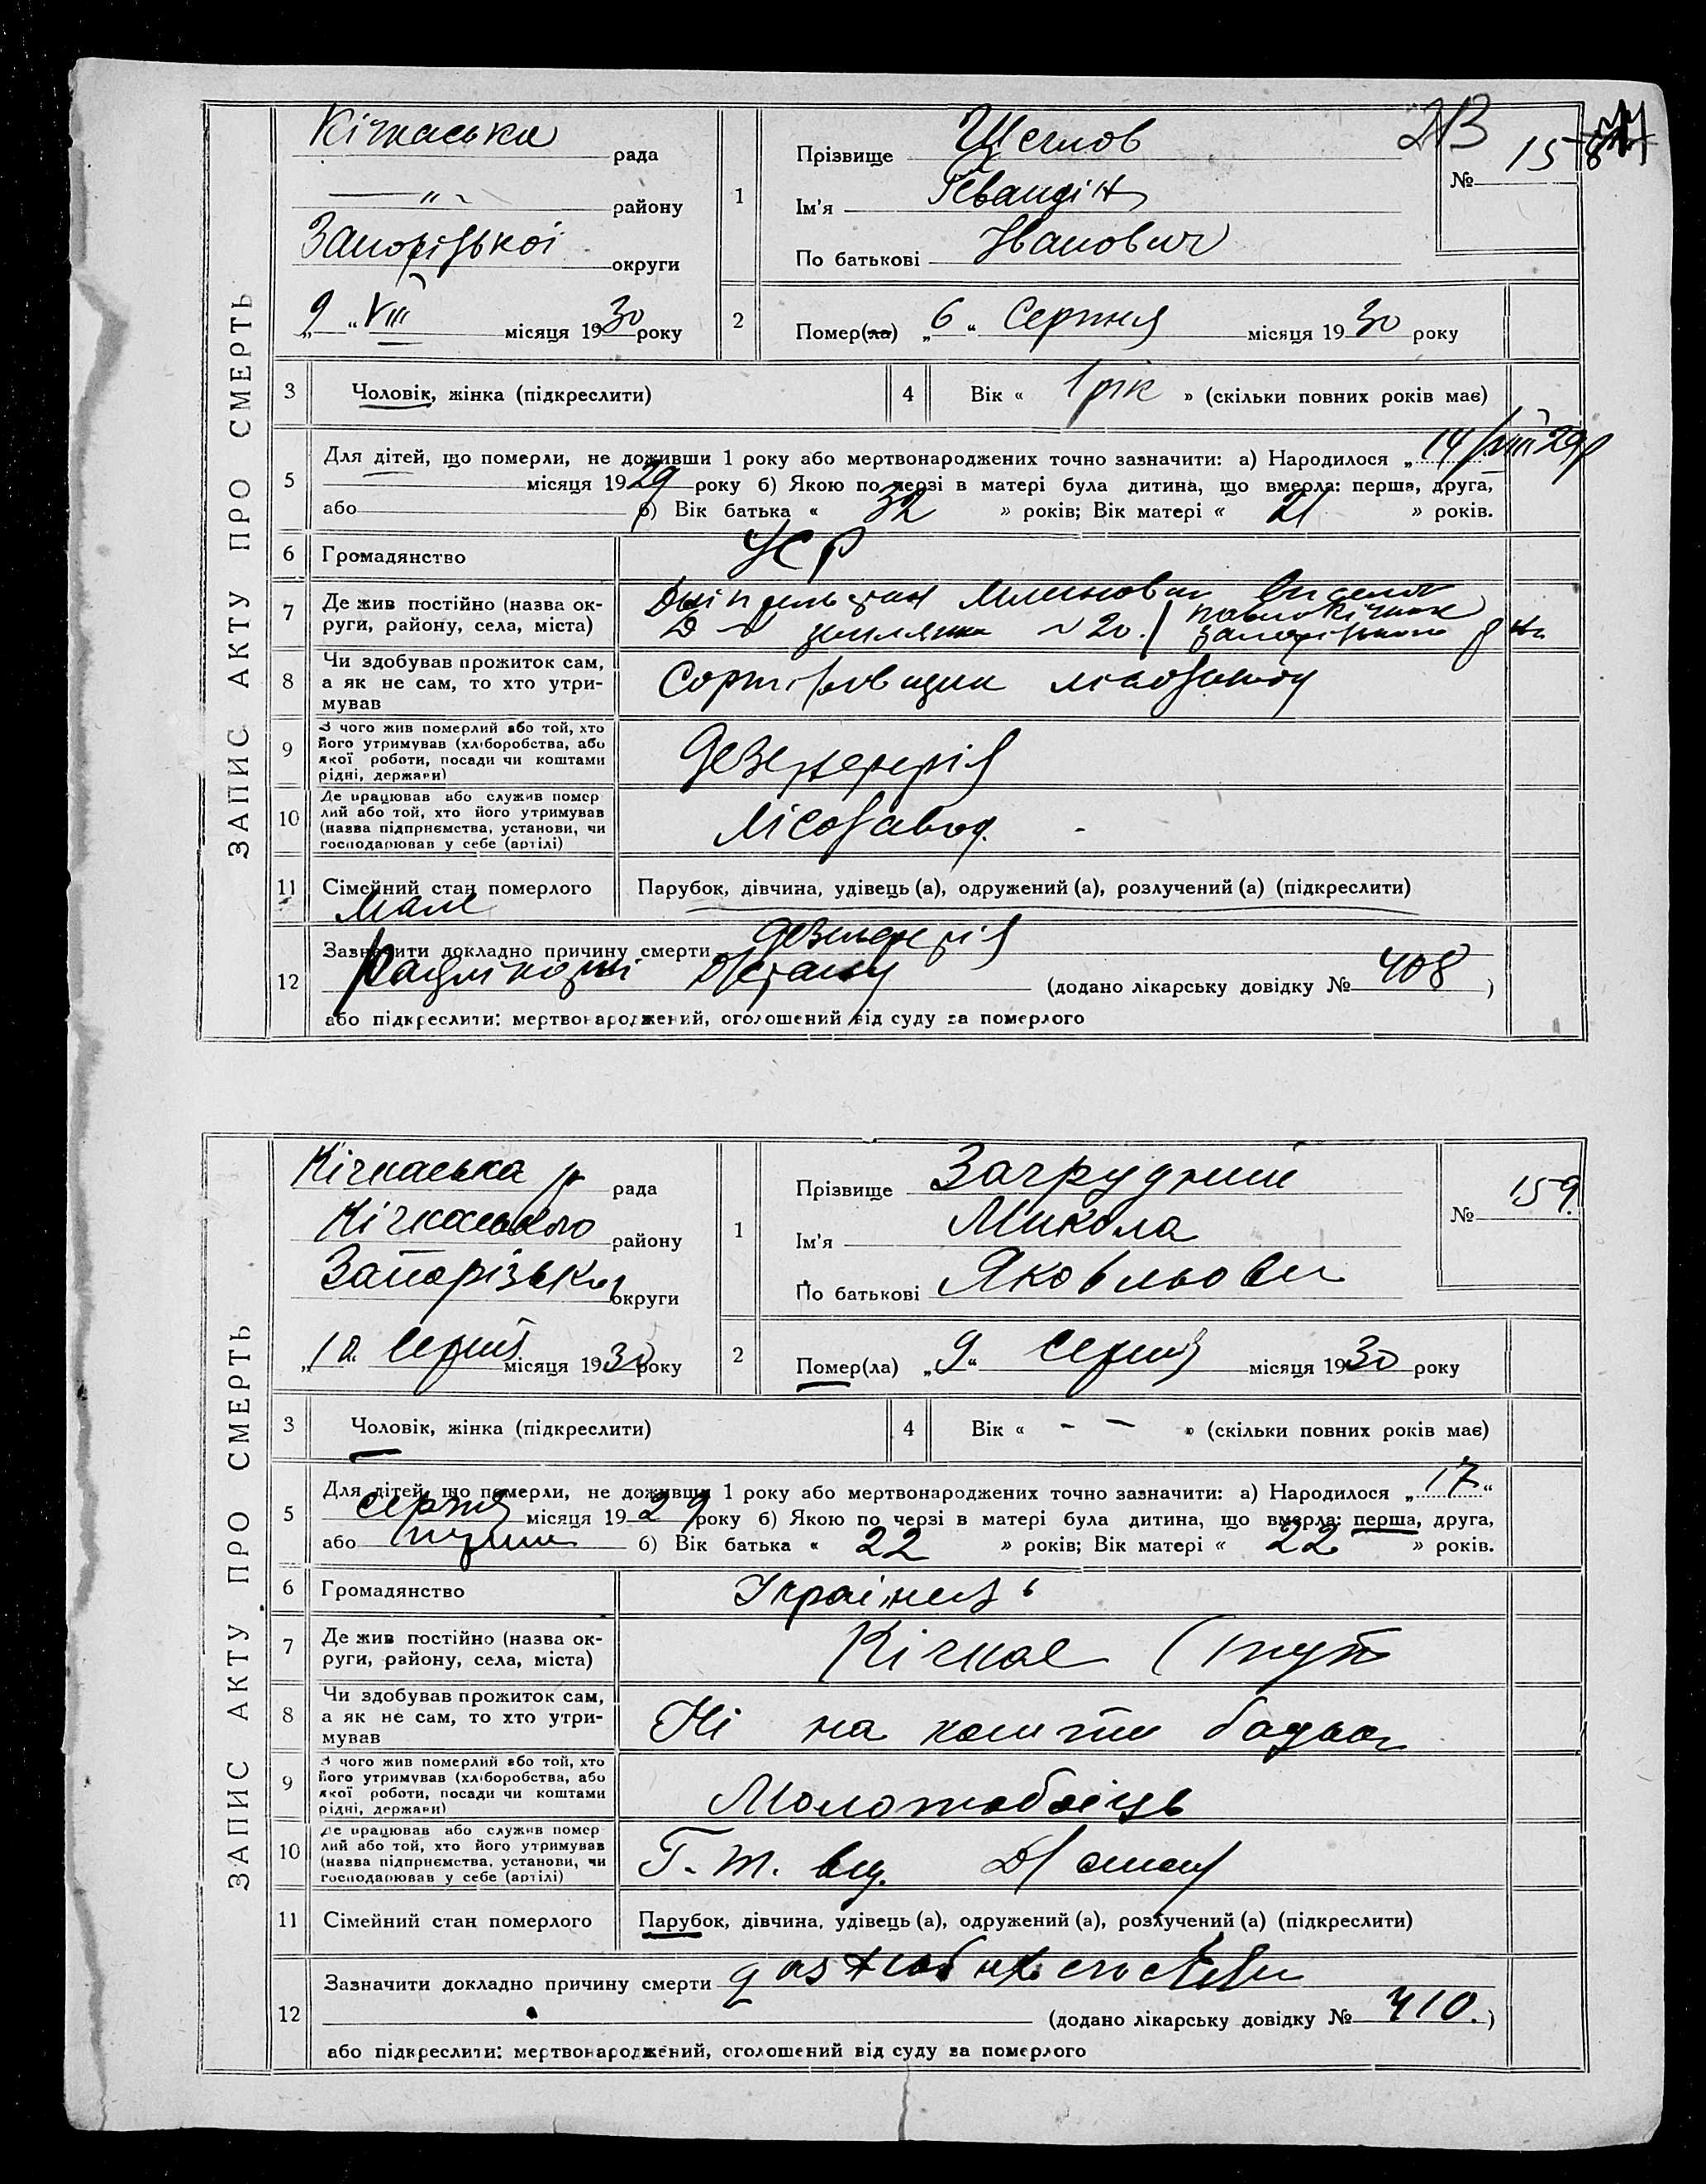 ЗАПИС АКТУ ПРО СМЕРТЬ
Кічкаська рада
—„— району
Запорізької округи
„9“ VIII місяця 1930 року
1
Прізвище
Ім'я
По батькові Іванович
№ 158
2
Помер(ла) „6“ Серпня місяця 1930 року
3
Чоловік, жінка (підкреслити)
4
Вік « 1 рік » (скільки повних років має)
5
Для дітей, що померли, не доживши 1 року або мертвонароджених точно зазначити: а) Народилося „14/VIII 29р
місяця 1929 року б) Якою по черзі в матері була дитина, що вмерла: перша, друга,
або б) Вік батька « 32 » років; Вік матері « 21 » років.
6
Громадянство УСР
7
Де жив постійно (назва ок-
руги, району, села, міста)
землянка № 20
8
Чи здобував прожиток сам,
а як не сам, то хто утри-
мував
Сортіровщик лісозаводу
9
З чого жив померлий або той, хто
його утримував (хліборобства, або
якої роботи, посади чи коштами
рідні, держави)
10
Де працював або служив помер
лий або той, хто його утримував
(назва підприємства, установи, чи
господарював у себе (артілі)
Лісозавод.
11
Сімейний стан померлого
Парубок, дівчина, удівець (а), одружений (а), розлучений (а) (підкреслити)
Мале
12
Зазначити докладно причину смерти
(додано лікарську довідку № 408)
або підкреслити: мертвонароджений, оголошений від суду за померлого
ЗАПИС АКТУ ПРО СМЕРТЬ
Кічкаська рада
Кічкаського району
Запорізької округи
„10“ серпня місяця 1930 року
1
Прізвище Загрудний
Ім'я Микола
По батькові Яковльович
№ 159.
2
Помер(ла) „9“ серпня місяця 1930 року
3
Чоловік, жінка (підкреслити)
4
Вік « - - » (скільки повних років має)
5
Для дітей, що померли, не доживши 1 року або мертвонароджених точно зазначити: а) Народилося „17“
серпня місяця 1929 року б) Якою по черзі в матері була дитина, що вмерла: перша, друга,
або б) Вік батька « 22 » років; Вік матері « 22 » років.
6
Громадянство Українець
7
Де жив постійно (назва ок-
руги, району, села, міста)
Кічкас (тут
8
Чи здобував прожиток сам,
а як не сам, то хто утри-
мував
Ні на кошти батька
9
З чого жив померлий або той, хто
його утримував (хліборобства, або
якої роботи, посади чи коштами
рідні, держави)
Молотобоіць
10
Де працював або служив помер
лий або той, хто його утримував
(назва підприємства, установи, чи
господарював у себе (артілі)
Г. т. від.
11
Сімейний стан померлого
Парубок, дівчина, удівець (а), одружений (а), розлучений (а) (підкреслити)
12
Зазначити докладно причину смерти
(додано лікарську довідку № 410.)
або підкреслити: мертвонароджений, оголошений від суду за померлого